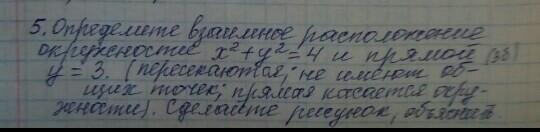 5. Определите взаимное расположение
окружности x²+y²=4 и прямой (3б)
y=3. (пересекаются; не имеют об-
щих точек; прямая касается окру-
жности). Сделайте рисунок, объяснит.